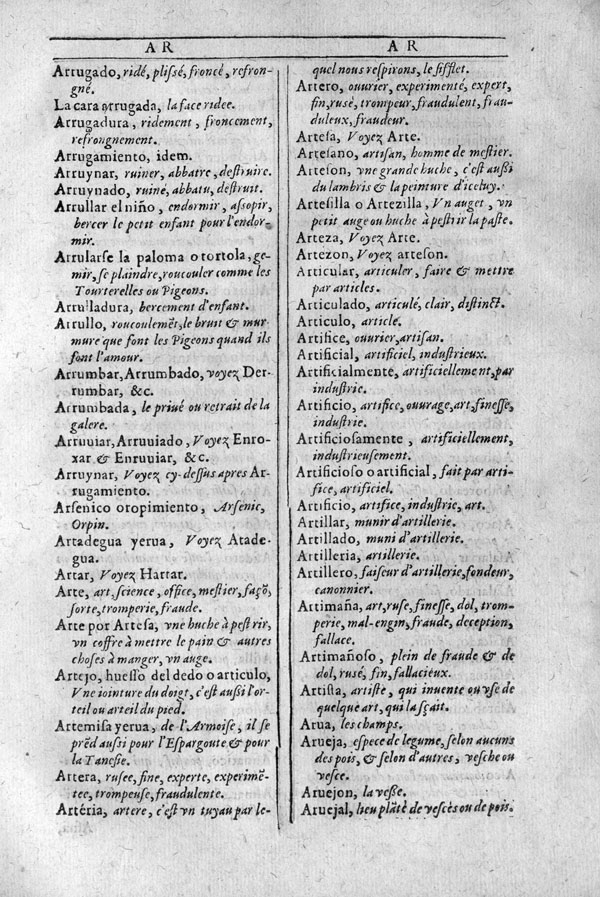 AR
Arrugado, ridé, plissé, froncé, refron-
gné.
La cara arrugada, la face ridee.
Arrugadura, ridement, froncement,
refrongnement.
Arrugamiento, idem.
Arruynar, ruiner, abbatre, destruire.
Arruynado, ruiné, abbatu, destruit.
Arrullar el niño, endormir, assopir,
bercer le petit enfant pour l'endor-
mir.
Arrularse la paloma o tortola, ge-
mir, se plaindre, roucouler comme les
Tourterelles ou Pigeons.
Arrulladura, bercement d'enfant.
Arrullo, roucoulemẽt, le bruit & mur-
mure que font les Pigeons quand ils
font l'amour.
Arrumbar, Arrumbado, voyez Der-
rumbar, &c.
Arrumbada, le priué ou retrait de la
galere.
Arruuiar, Arruuiado, Voyez Enro-
xar & Enruuiar, &c.
Arruynar, Voyez cy-dessus apres Ar-
rugamiento.
Arsenico oropimiento, Arsenic,
Orpin.
Artadegua yerua, Voyez Atade-
gua.
Artar, Voyez Hartar.
Arte, art, science, office, mestier, façõ,
sorte, tromperie, fraude.
Arte por Artesa, vne huche à pestrir,
vn coffre à mettre le pain & autres
choses à manger, vn auge.
Artejo, huesso del dedo o articulo,
Vne iointure du doigt, c'est aussi l'or-
teil ou arteil du pied.
Artemisa yerua, de l'Armoise, il se
prẽd aussi pour l'Espargoute & pour
la Tanesie.
Artera, rusee, fine, experte, experimẽ-
tee, trompeuse, fraudulente.
Artéria, artere, c'est vn tuyau par le-
AR
quel nous respirons, le sifflet.
Artero, ouurier, experimenté, expert,
fin, rusé, trompeur, fraudulent, frau-
duleux, fraudeur.
Artesa, Voyez Arte.
Artesano, artisan, homme de mestier.
Arteson, vne grande huche, c'est aussi
du lambris & la peinture d'iceluy.
Artesilla o Artezilla, Vn auget, vn
petit auge ou huche à pestrir la paste.
Arteza, Voyez Arte.
Artezon, Voyez arteson.
Articular, articuler, faire & mettre
par articles.
Articulado, articulé, clair, distinct.
Articulo, article.
Artifice, ouurier, artisan.
Artificial, artificiel, industrieux.
Artificialmente, artificiellement, par
industrie.
Artificio, artifice, ouurage, art, finesse,
industrie.
Artificiosamente, artificiellement,
industrieusement.
Artificioso o artificial, fait par arti-
fice, artificiel.
Artificio, artifice, industrie, art.
Artillar, munir d'artillerie.
Artillado, muni d'artillerie.
Artilleria, artillerie.
Artillero, faiseur d'artillerie, fondeur,
canonnier.
Artimaña, art, ruse, finesse, dol, trom-
perie, mal-engin, fraude, deception,
fallace.
Artimañoso, plein de fraude & de
dol, rusé, fin, fallacieux.
Artista, artiste, qui inuente ou vse de
quelque art, qui la sçait.
Arua, les champs.
Arueja, espece de legume, selon aucuns
des pois, & selon d'autres, vesche ou
vesce.
Aruejon, la vesse.
Aruejal, lieu plãté de vesces ou de pois.